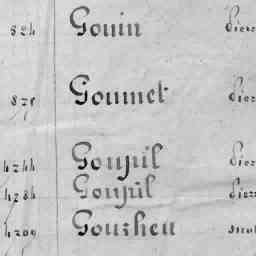 524 Gouin Pierr
878 Goumet Pier
4244 Goupil Pier
4284 Goupil Pierr
4209 Gourheu